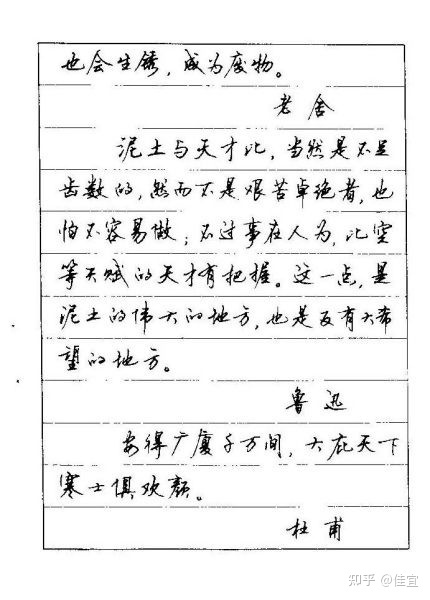 也会生锈，成为废物。
老舍
泥土与天才比，当然是不足
齿数的，然而不是艰苦卓绝者，也
怕不容易做；不过事在人为，比空
等天赋的天才有把握。这一点，是
泥土的伟大的地方，也是反有大希
望的地方。
鲁迅
安得广厦千万间，大庇天下
寒士俱欢颜。
杜甫
知乎 @佳宜